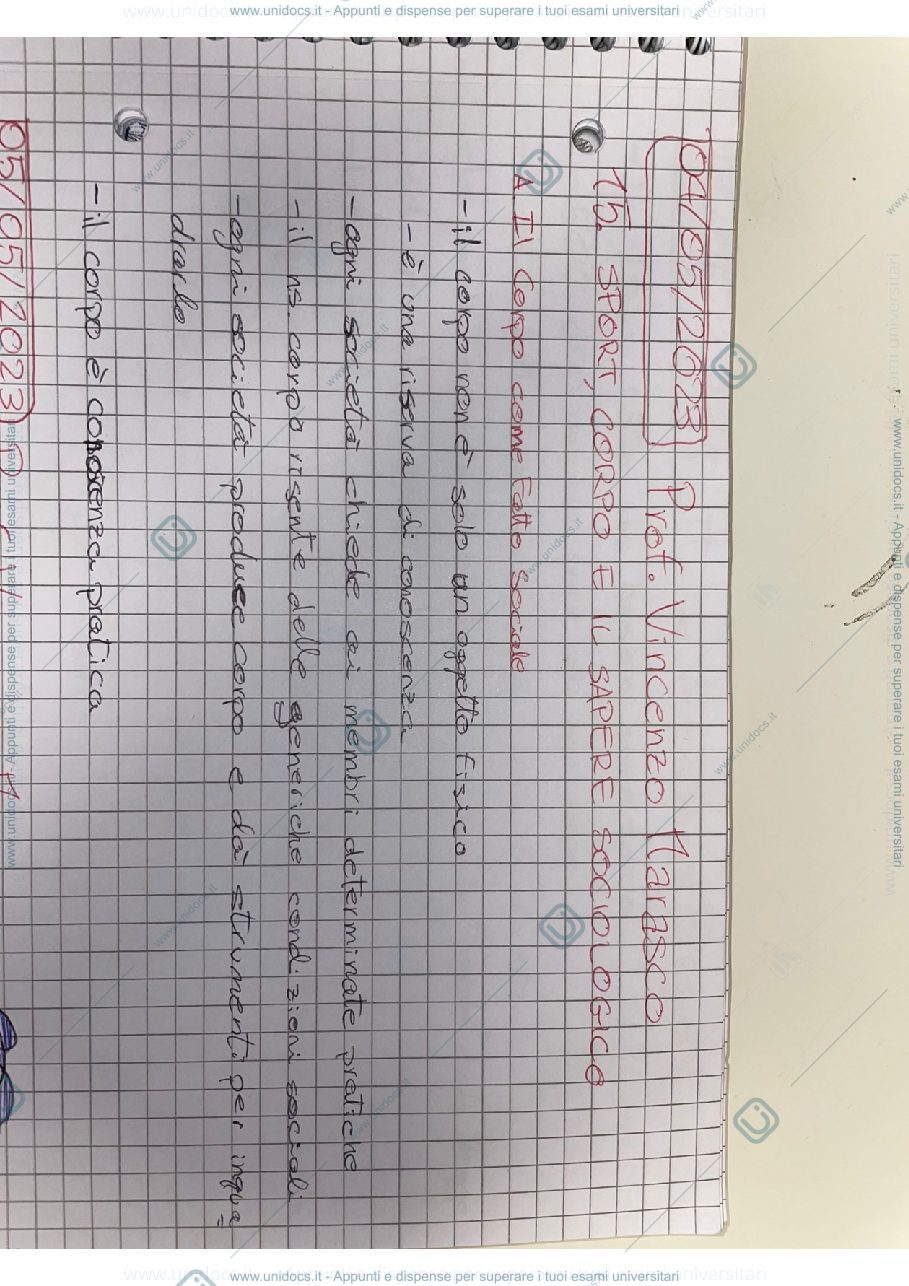 www.unidocs.it - Appunti e dispense per superare i tuoi esami universitari
04/05/2023 Prof. Vincenzo Marasco
15. SPORT, CORPO E IL SAPERE SOCIOLOGICO
A Il corpo come Fatto Sociale
- il corpo non è solo un oggetto fisico
- è una riserva di conoscenza
- ogni società chiede ai membri determinate pratiche
- il ns. corpo risente delle generiche condizioni sociali
- ogni società produce corpo e dà strumenti per inqua=
drarlo
- il corpo è conoscenza pratica
05/05/2023
www.unidocs.it - Appunti e dispense per superare i tuoi esami universitari
www.unidocs.it - Appunti e dispense per superare i tuoi esami universitari
www.unidocs.it - Appunti e dispense per superare i tuoi esami universitari